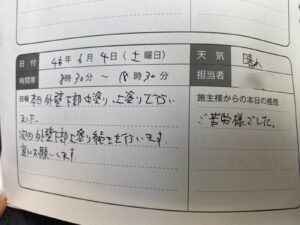 日付 年 6月4日(土曜日) 天気 晴れ
時間帯 8時30分 〜 18時30分 担当者
本日外壁下部中塗り、上塗りで行い
ました。
次回外壁下部上塗り続きを行います。
宜しくお願いします。
施主様からの本日の感想
ご苦労様でした。